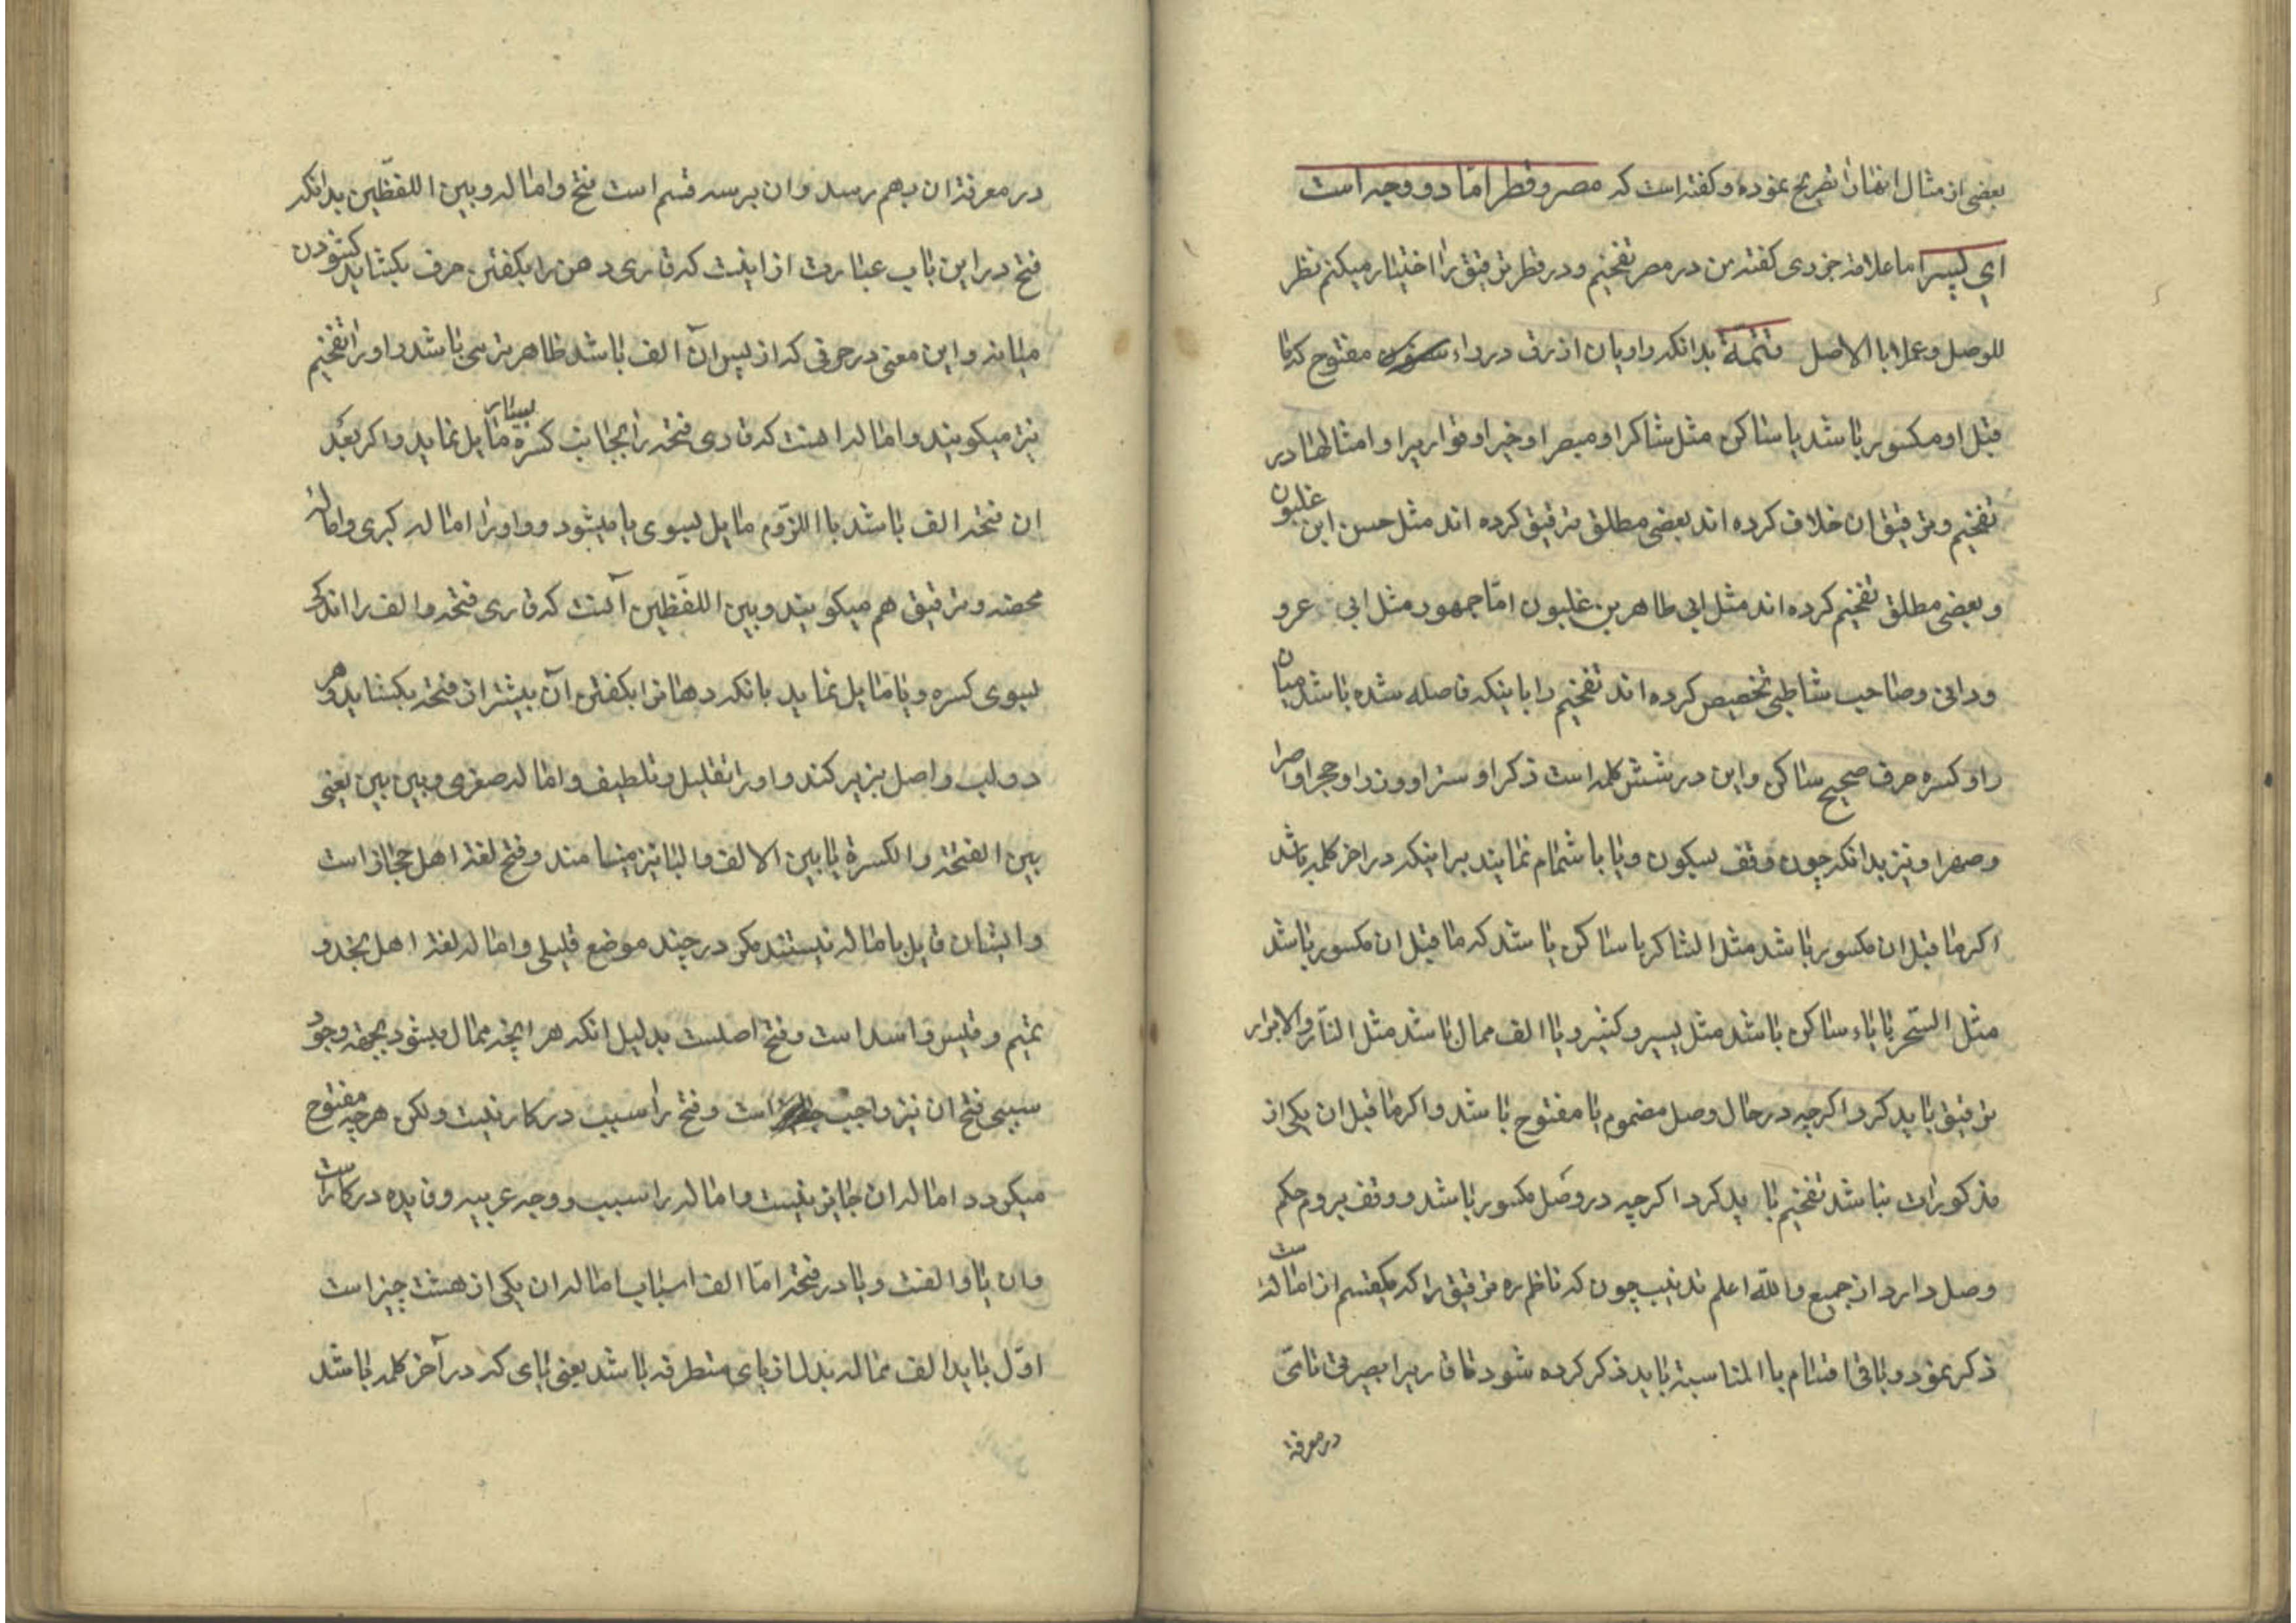 بعضی از مثال انها را تصریح نموده و کفته است که مصر و قطر امّا دو وجه است
ای پسر اما علامه جزری کفته من در مصر تفخیم و در قطر ترقیق را اختیار میکنم نظر
للوصل و عملا بالاصل تتمة بدانکه راویان ازرق در راء مفتوح که تا
قبل او مکسور باشد یا ساکن مثل شاکرا و مبصرا و خیرا و قواریرا و امثالها در
تفخیم و ترقیق ان خلاف کرده اند بعضی مطلق ترقیق کرده اند مثل حسن ابن غلبون
و بعضی مطلق تفخیم کرده اند مثل ابی طاهر بن غلبون امّا جمهور مثل ابی عمرو
ودانی و صاحب شاطبی تخصیص کرده اند تفخیم را باینکه فاصله شده باشد میان
را و کسره حرف صحیح ساکن و این در شش کلمه است ذکرا و سترا و وزرا و حجرا و امرا
و صهرا و نیز بدانکه چون وقف بسکون و یا باشمام نمایند برا اینکه در اخر کلمه باشد
اکر ما قبل ان مکسور باشد مثل الشاکر یا ساکن باشد که ما قبل ان مکسور باشد
مثل السّحر یا یاء ساکن باشد مثل یسیر و کثیر و یا الف ممال باشد مثل النّار و الابرار
ترقیق باید کرد اکرچه در حال وصل مضموم یا مفتوح باشد و اکر ما قبل ان یکی از
مذکورات نباشد تفخیم باید کرد اکرچه در وصل مکسور باشد و وقف بروم حکم
وصل دارد از جمیع والله اعلم تذنیب چون که ناظم ره ترقیق را که یکقسم از اماله است
ذکر نمود و باقی اقسام باالمناسبة باید ذکر کرده شود تا قاریرا بصیرتی تامّی
در معرفة
در معرفة ان بهم رسد و ان بر سه قسم است فتح و اماله و بین اللفظین بدانکه
فتح در این باب عبارت از اینست که قاری دهن را بکفتن حرف بکشاید کشودن
میانه و این معنی در حرفی که از پس آن الف باشد ظاهر تر می باشد و او را تفخیم
نیز میکویند و اماله انست که قاری فتحه را بجانب کسره بسیار مایل نماید و اکر بعد
ان فتحه الف باشد باللزوم مایل بسوی یا میشود و او را اماله کبری و اماله
محضه و ترقیق هم میکویند و بین اللفظین آنست که قاری فتحه و الف را اندکی
بسوی کسره و یا مایل نماید بانکه دهانرا بکفتن آن بیشتر از فتحه بکشاید و هر
دو لب و اصل بزیر کند و او را تقلیل و تلطیف و اماله صغری و بین بین یعنی
بین الفتحة و الکسرة یا بین الالف و الیا نیز مینامند و فتح لغة اهل حجاز است
و ایشان قایل باماله نیستند مکر در چند موضع قلیلی و اماله لغة اهل نجد و
تمیم و قیس و اسد است و فتح اصلست بدلیل انکه هر انچه ممال میشود بجهة وجود
سببی فتح ان نیز واجب است و فتح را سبب در کار نیست ولکن هر چه مفتوح
میکردد اماله ان جایز نیست و اماله را سبب و وجه عربیه و فایده در کار است
و ان یا و الفت و یا در فتحه امّا الف اسباب اماله ان یکی از هشت چیز است
اوّل باید الف مماله بدل از یای متطرفه باشد یعنی یای که در آخر کلمه باشد